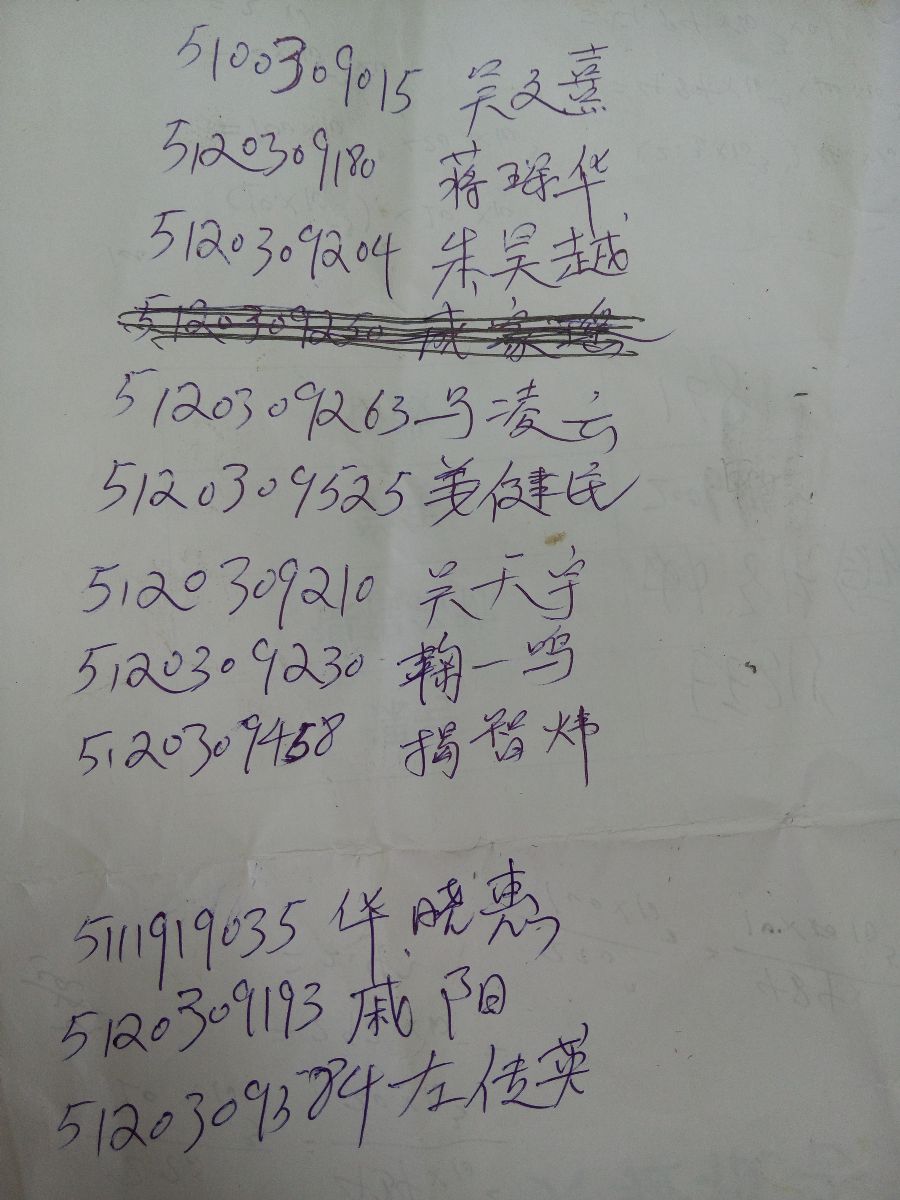 5100309015 吴文熹
5120309180 蒋琛华
5120309204 朱昊越
5120309250 成家
5120309263 马凌云
5120309525 姜健民
5120309210 吴天宇
5120309230 鞠一鸣
5120309458 揭智炜
5111919035 华晓惠
5120309193 戚阳
5120309384 左传英